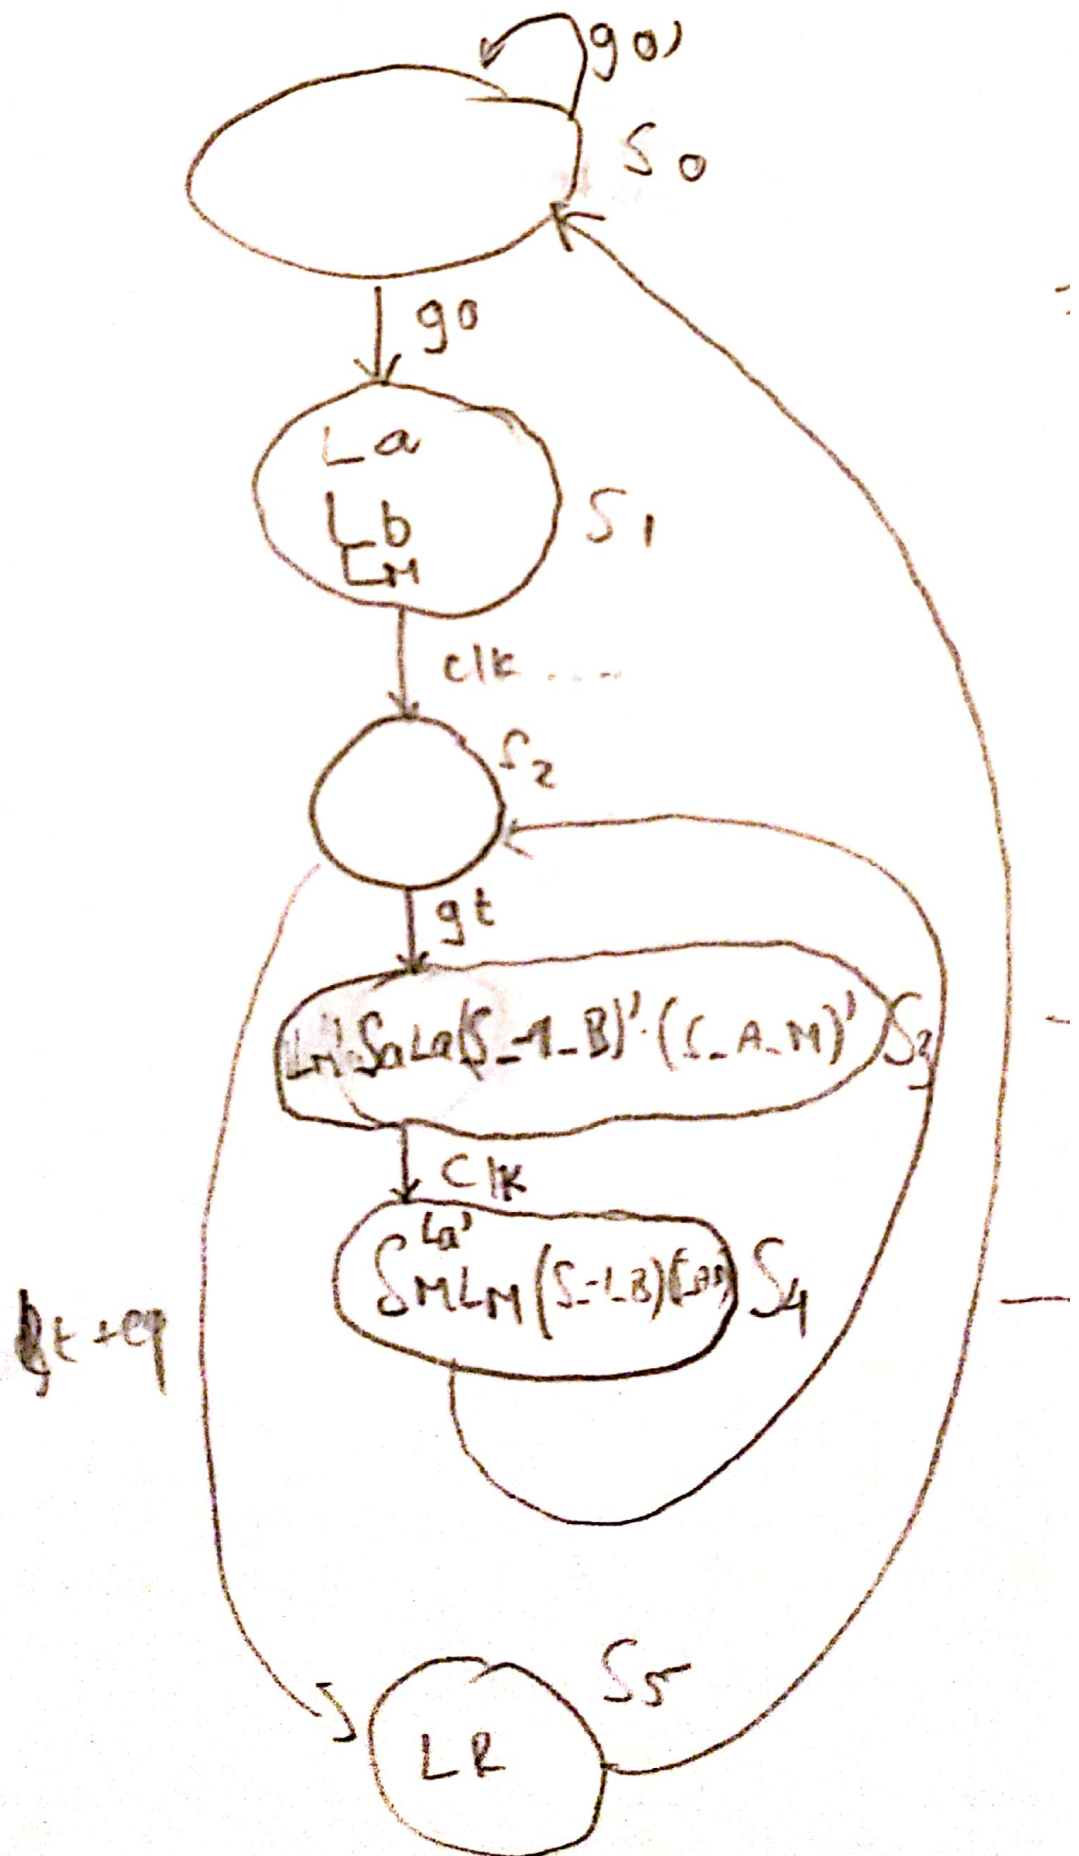 go'
S0
go
La
Lb
LM
S1
clk ....
S2
gt
LM'.SaLa(S_A_B)'.(S_A_M)'
S3
clk
La'
SMLM(S-LB)
S4
S5
LR